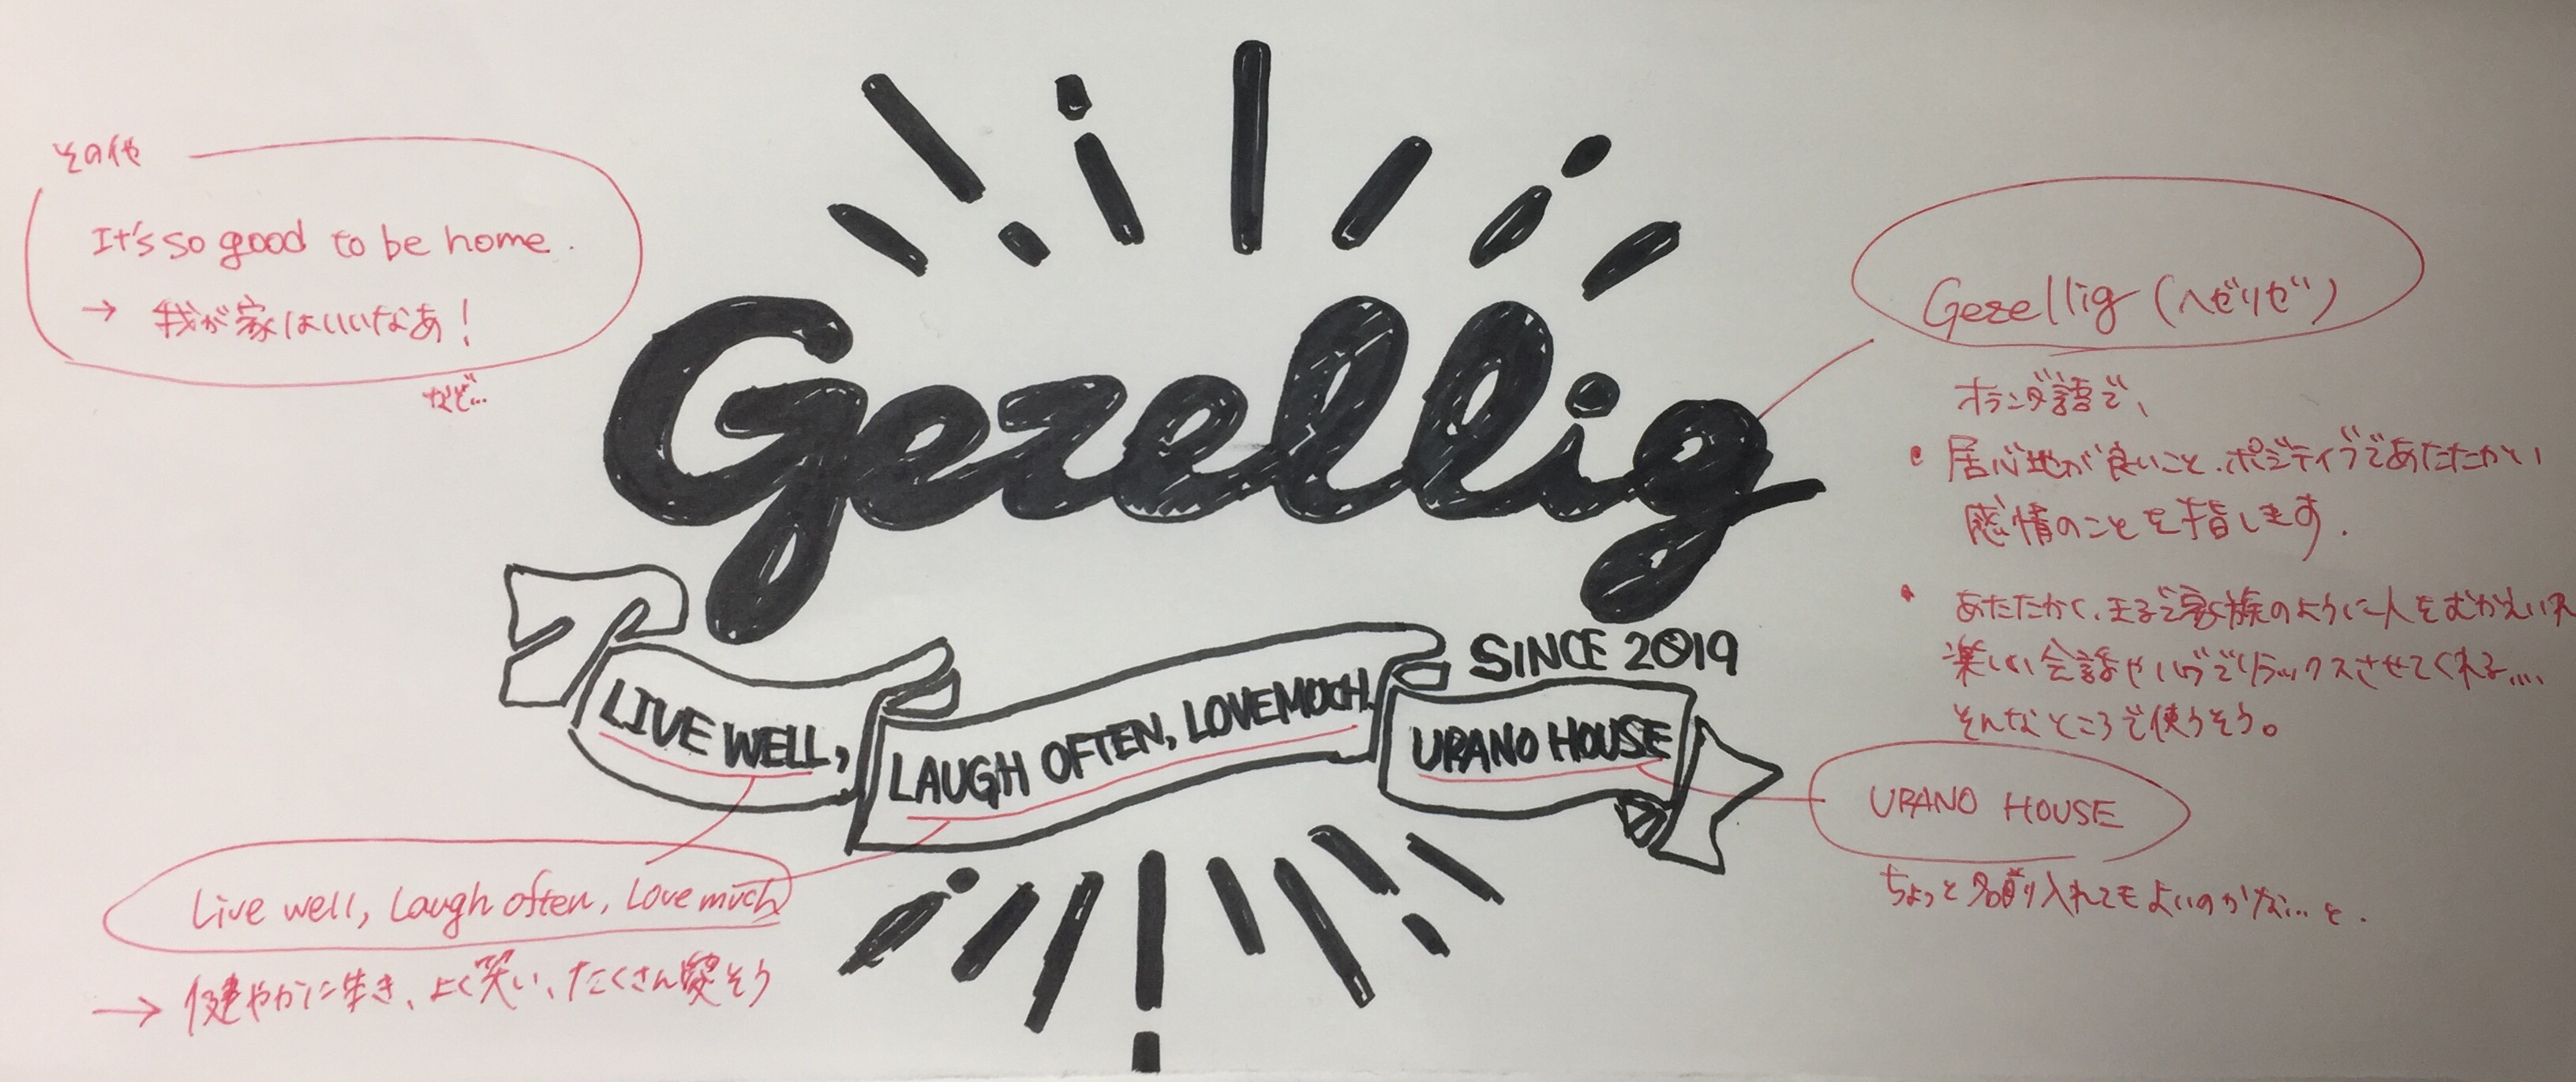 その他
It's so good to be home.
→ 我が家はいいなあ!
など…
Gezellig
LIVE WELL,
LAUGH OFTEN, LOVE MUCH.
SINCE 2019
URANO HOUSE
Gezellig (ヘゼリゼ)
オランダ語で、
・居心地が良いこと、ポジティブであたたかい
感情のことを指します.
・あたたかく、まるで家族のように人をむかえいれ
楽しい会話やハグでリラックスさせてくれる....
そんなところで使うそう。
URANO HOUSE
ちょっと名前入れてもよいのかな…と.
Live well, Laugh often, Love much
→ 健やかに生き、よく笑い、たくさん愛そう